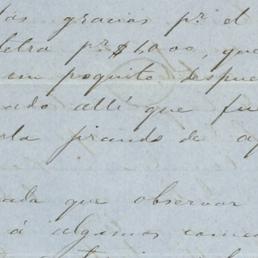 las gracias pr. el
letra pr. $1000, que
un poquito despue
ado allí que fu
ta jirando de a
ada que observar
á algunos